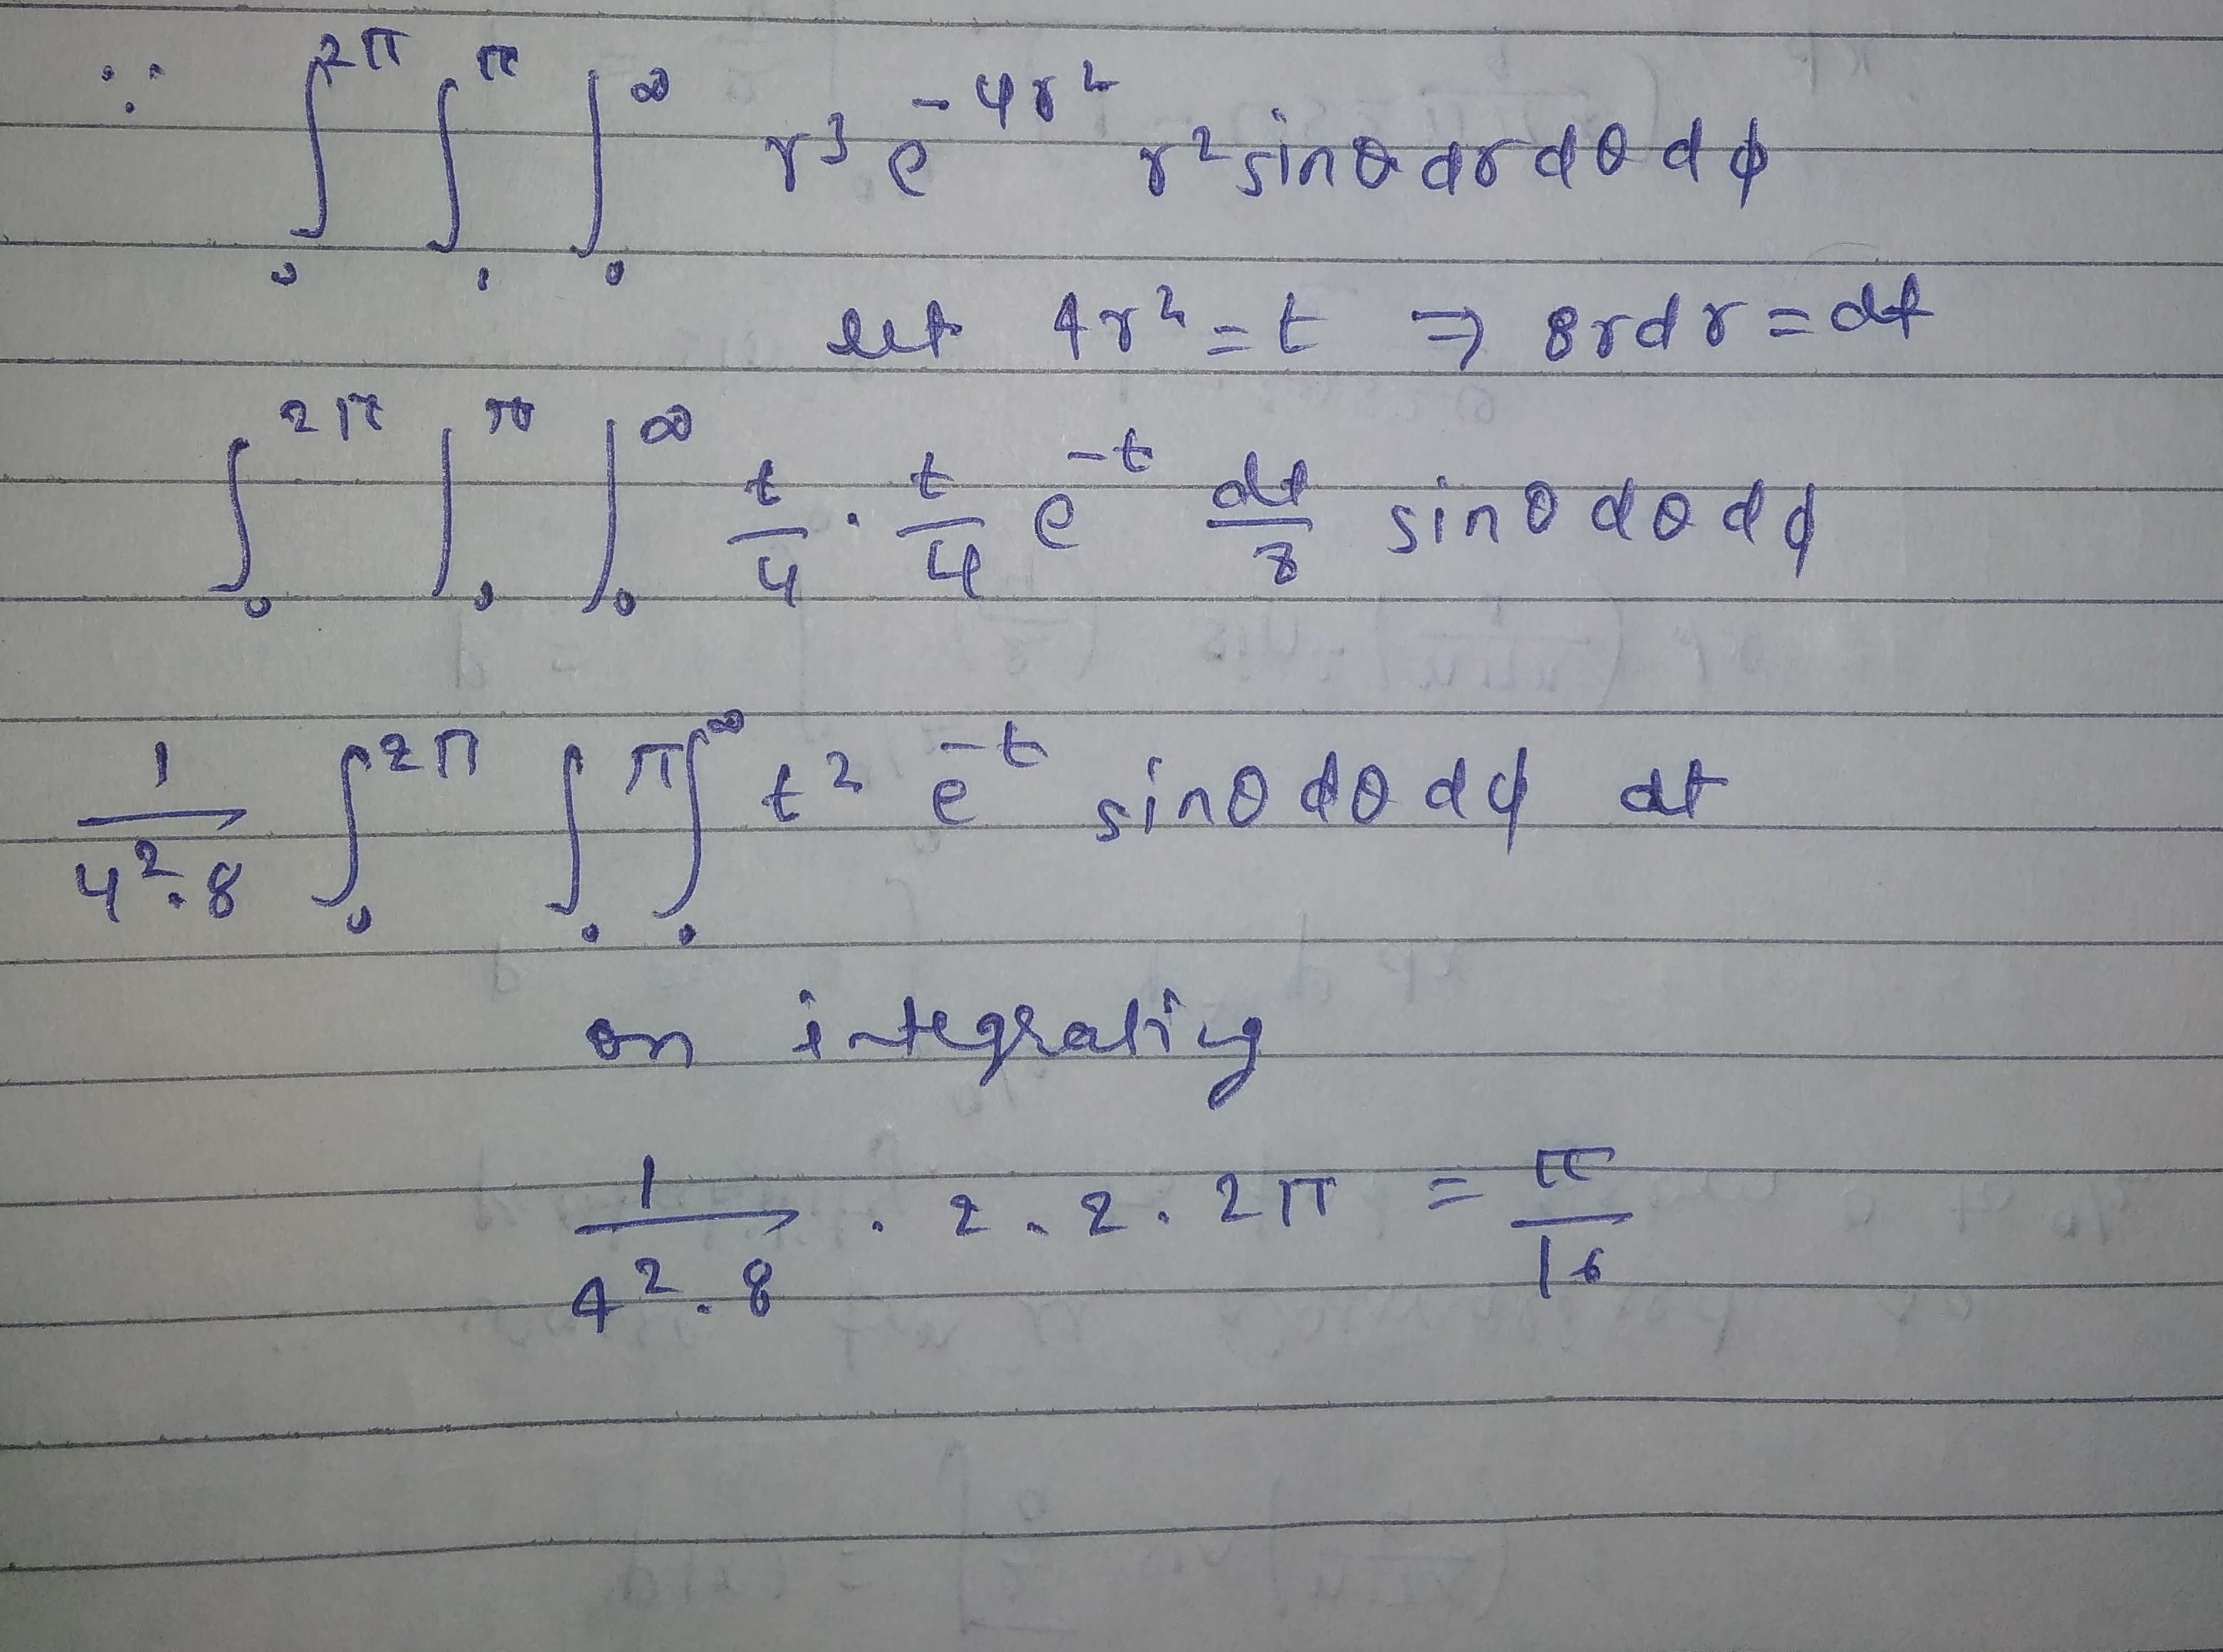 ∵ ∫₀^{2π} ∫₀^{π} ∫₀^{∞} r³ e^{-4r²} r² sinθ dr dθ dϕ
let 4r² = t ⇒ 8rdr = dt
∫₀^{2π} ∫₀^{π} ∫₀^{∞} t/4 · t/4 e^{-t} dt/8 sinθ dθ dϕ
1/(4²·8) ∫₀^{2π} ∫₀^{π} ∫₀^{∞} t² e^{-t} sinθ dθ dϕ dt
on integrating
1/(4²·8) · 2 · 2 · 2π = π/16